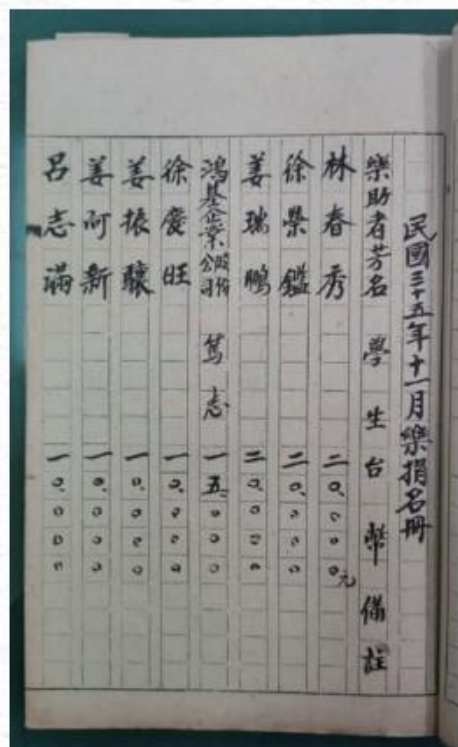 民國三十五年十一月樂捐名冊
樂助者芳名 學生 台幣 備註
林春秀 二〇.〇〇〇元
徐榮鑑 二〇.〇〇〇
姜瑞鵬 二〇.〇〇〇
鴻基企業股份公司 篤志 一五.〇〇〇
徐慶旺 一〇.〇〇〇
姜振驤 一〇.〇〇〇
姜阿新 一〇.〇〇〇
呂志滿 一〇.〇〇〇